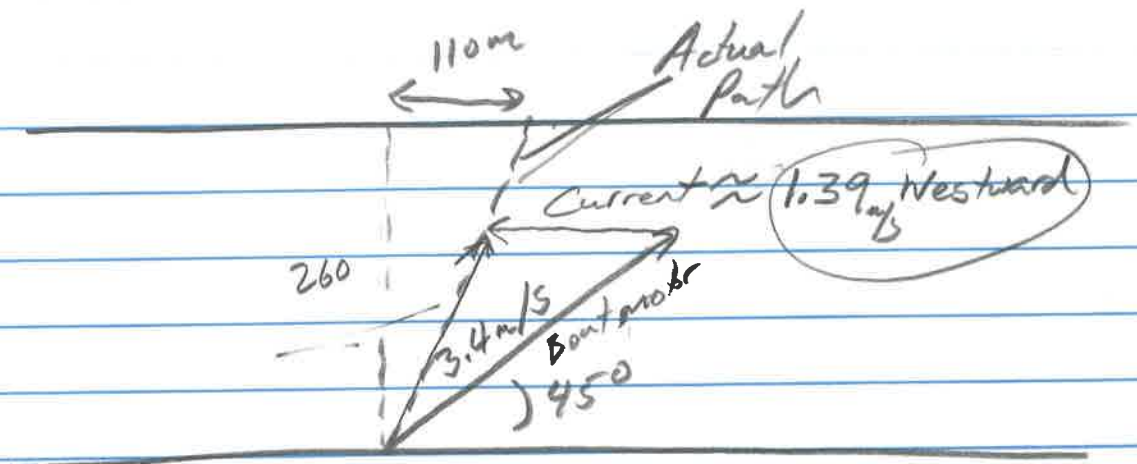 110m
Actual
Path
Current ≈ 1.39 m/s Westward
260
3.4 m/s
Boat motor
45°